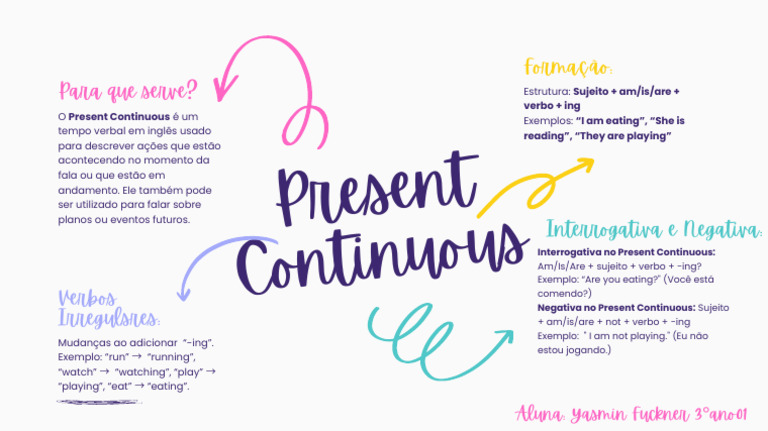 Para que serve?
O Present Continuous é um
tempo verbal em inglês usado
para descrever ações que estão
acontecendo no momento da
fala ou que estão em
andamento. Ele também pode
ser utilizado para falar sobre
planos ou eventos futuros.
Formação:
Estrutura: Sujeito + am/is/are +
verbo + ing
Exemplos: “I am eating”, “She is
reading”, “They are playing”
Present
Continuous
Verbos
Irregulsres:
Mudanças ao adicionar “-ing”.
Exemplo: “run” → “running”,
“watch” → “watching”, “play” →
“playing”, “eat” → “eating”.
Interrogativa e Negativa:
Interrogativa no Present Continuous:
Am/Is/Are + sujeito + verbo + -ing?
Exemplo: “Are you eating?" (Você está
comendo?)
Negativa no Present Continuous: Sujeito
+ am/is/are + not + verbo + -ing
Exemplo: " I am not playing." (Eu não
estou jogando.)
Aluna: Yasmin Fuckner 3°ano01